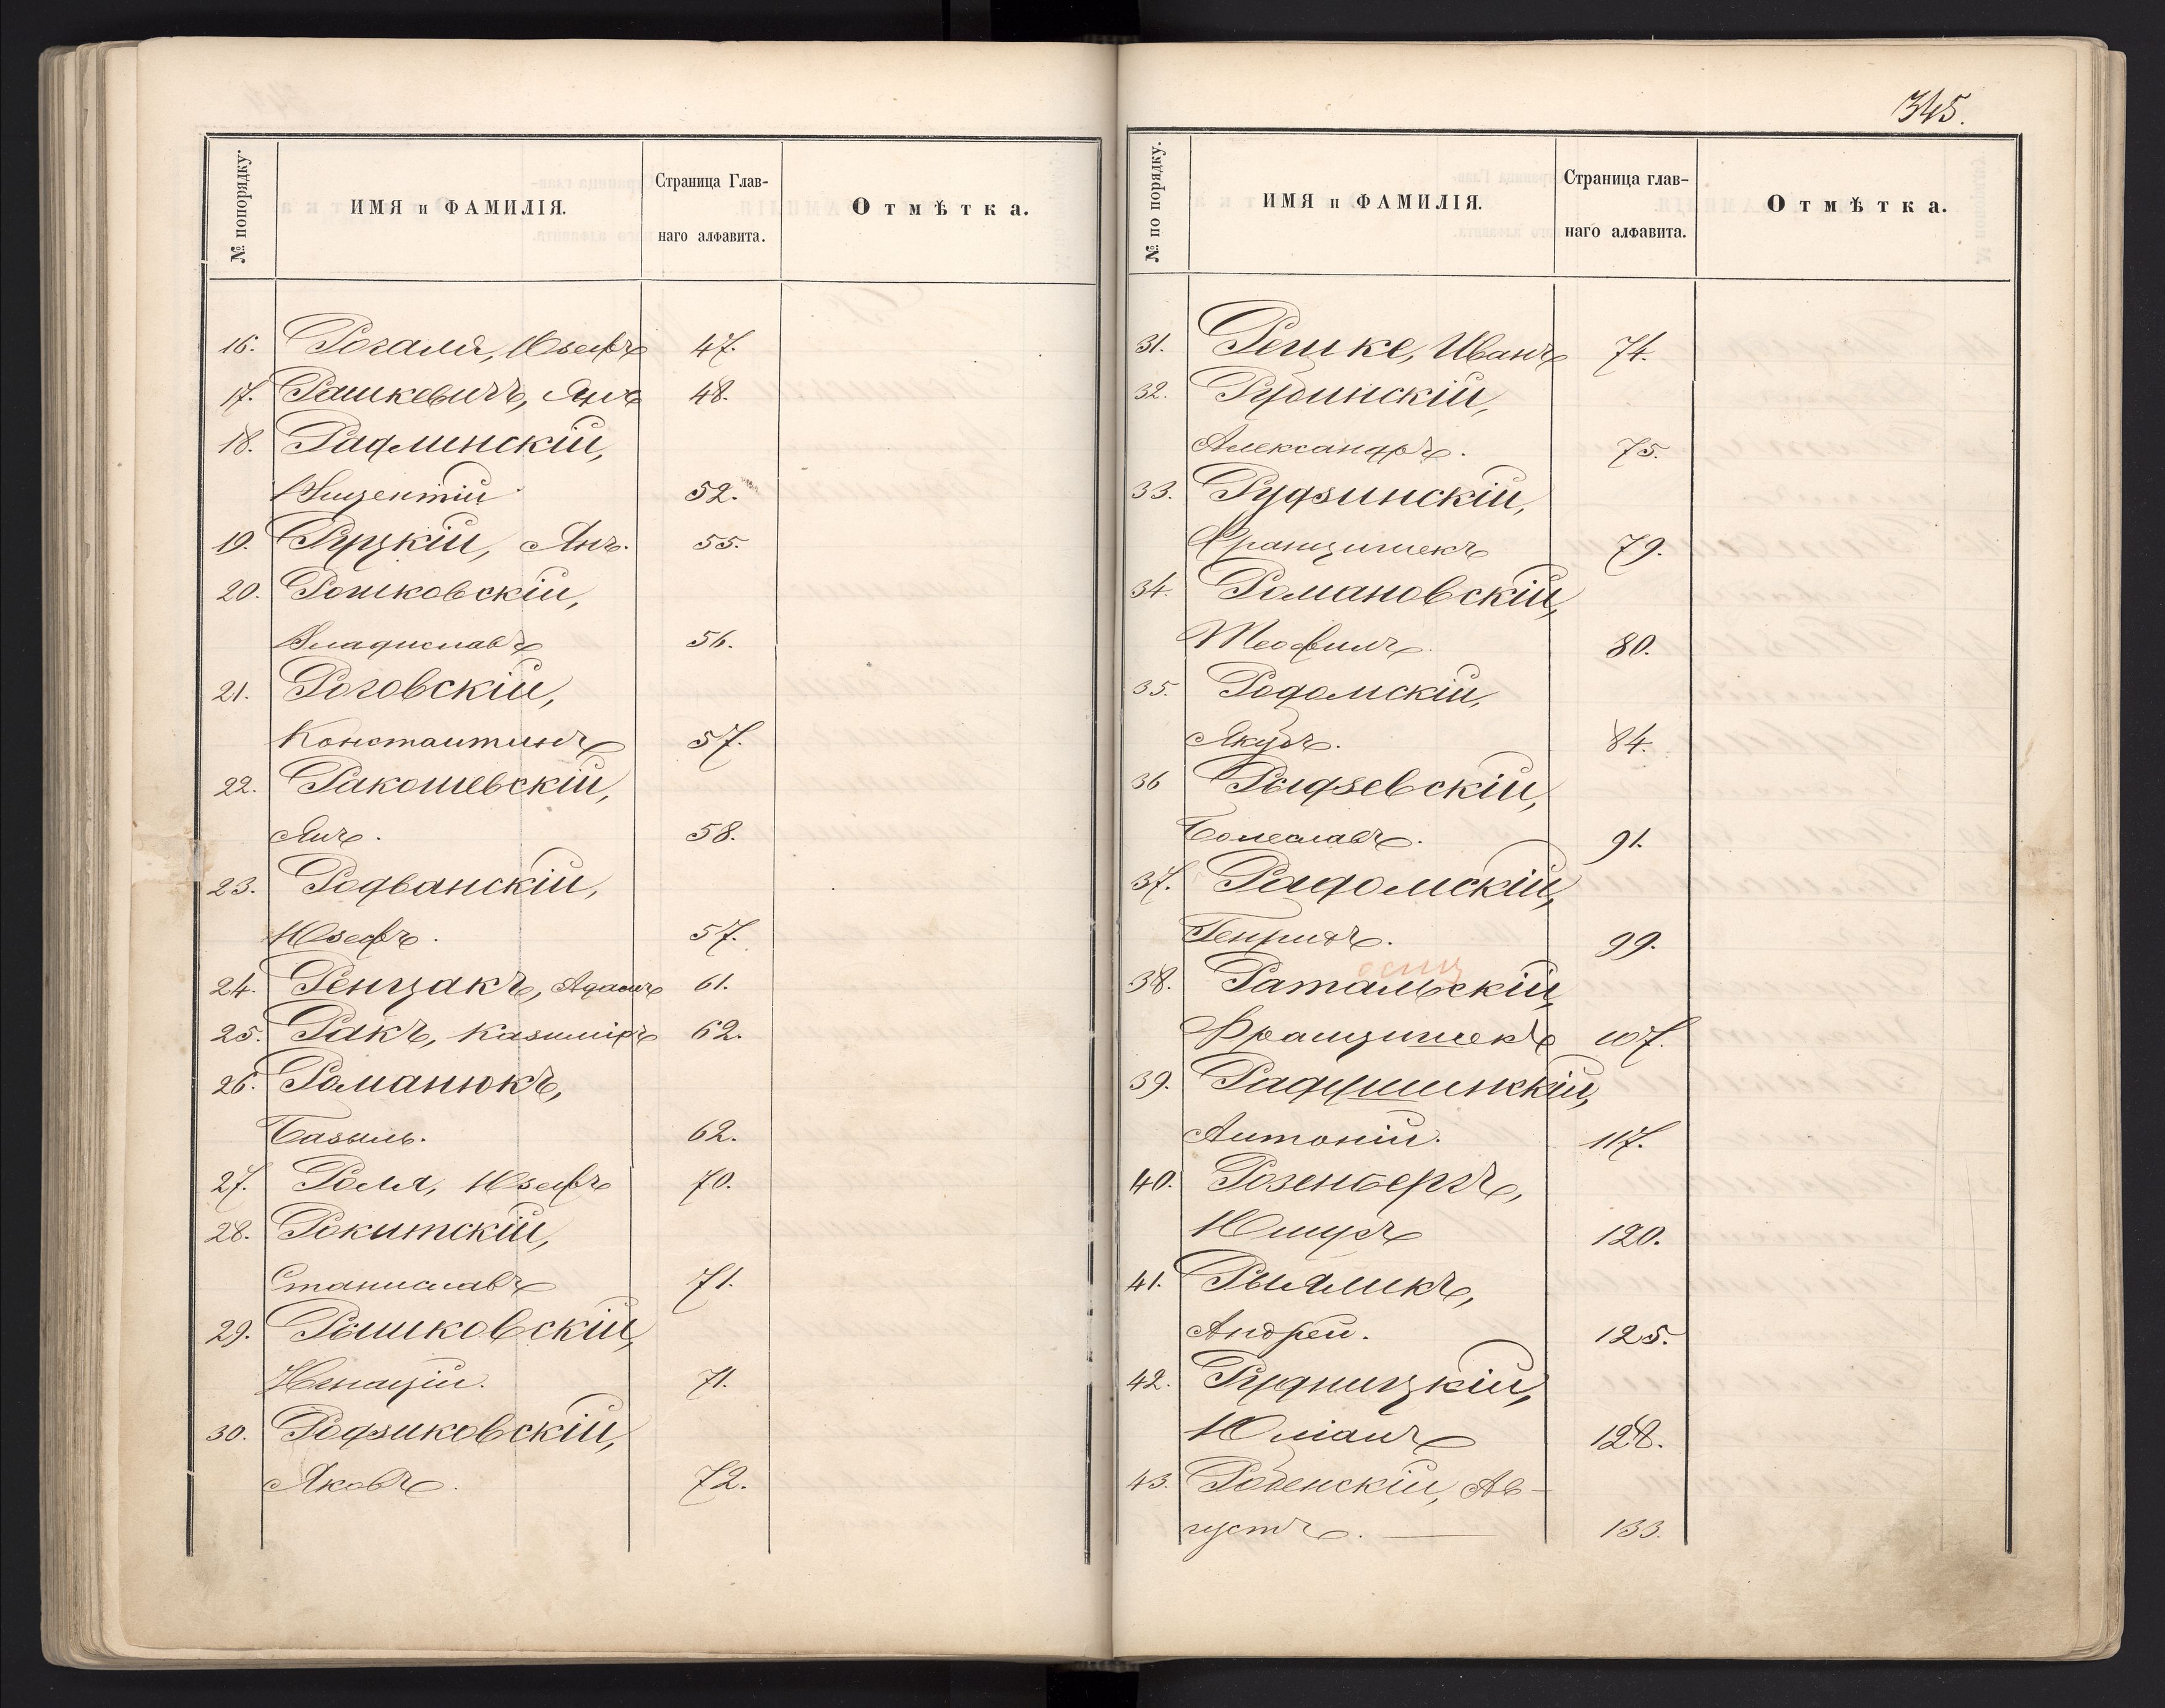 № попорядку.
ИМЯ и ФАМИЛІЯ.
Страница Глав-
наго алфавита.
Отмѣтка.
16. Рогаля, Юзефъ 47.
17. Рашкевичъ, Янъ 48.
18. Радлинскій,
Вицентій 52.
19. Руцкій, Янъ. 55.
20. Рошковскій,
Владиславъ 56.
21. Роговскій,
Константинъ 57.
22. Ракошевскій,
Янъ. 58.
23. Родванскій,
Юзефъ. 57.
24. Ренцакъ, Адамъ 61.
25. Ракъ, Казиміръ 62.
26. Романюкъ,
Базыль. 62.
27. Роля, Юзефъ 70.
28. Рокитскій,
Станиславъ 71.
29. Рышковскій,
Игнацій. 71.
30. Родзиковскій,
Яковъ. 72.
345.
№ по порядку.
ИМЯ и ФАМИЛІЯ.
Страница глав-
наго алфавита.
Отмѣтка.
31. Решке, Иванъ 74.
32. Рубинскій,
Александръ. 75.
33. Рудзинскій,
Францишекъ 79.
34. Романовскій,
Теофилъ. 80.
35. Родомскій,
Якубъ. 84.
36 Рыдзевскій,
Болеславъ. 91.
37. Радомскій,
Генрихъ. 99.
38. Ратальскій,
Францишекъ 107.
39. Радчшинскій,
Антоній. 117.
40. Розенбергъ,
120.
41. Рыямикъ,
Андрей. 125.
42. Рудницкій,
Юліанъ 128.
43. Роденскій, Ав-
густъ. — 133.